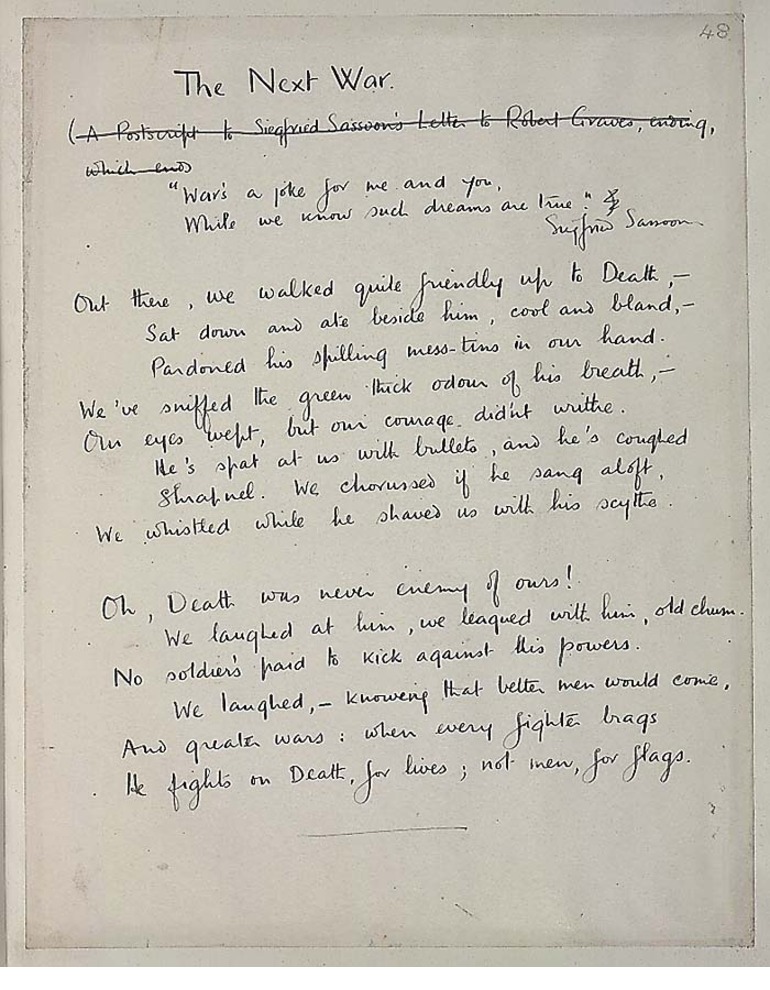 48
The Next War.
(A Postscript to Siegfried Sassoon's Letter to Robert Graves, ending,
which ends
"War's a joke for me and you,
While we know such dreams are true."
Siegfried Sassoon
Out there, we walked quite friendly up to Death,—
Sat down and ate beside him, cool and bland,—
Pardoned his spilling mess-tins in our hand.
We've sniffed the green thick odour of his breath,—
Our eyes wept, but our courage didn't writhe.
He's spat at us with bullets, and he's coughed
Shrapnel. We chorussed if he sang aloft,
We whistled while he shaved us with his scythe.
Oh, Death was never enemy of ours!
We laughed at him, we leagued with him, old chum.
No soldier's paid to kick against His powers.
We laughed,— knowing that better men would come,
And greater wars: when every fighter brags
He fights on Death, for lives; not men, for flags.